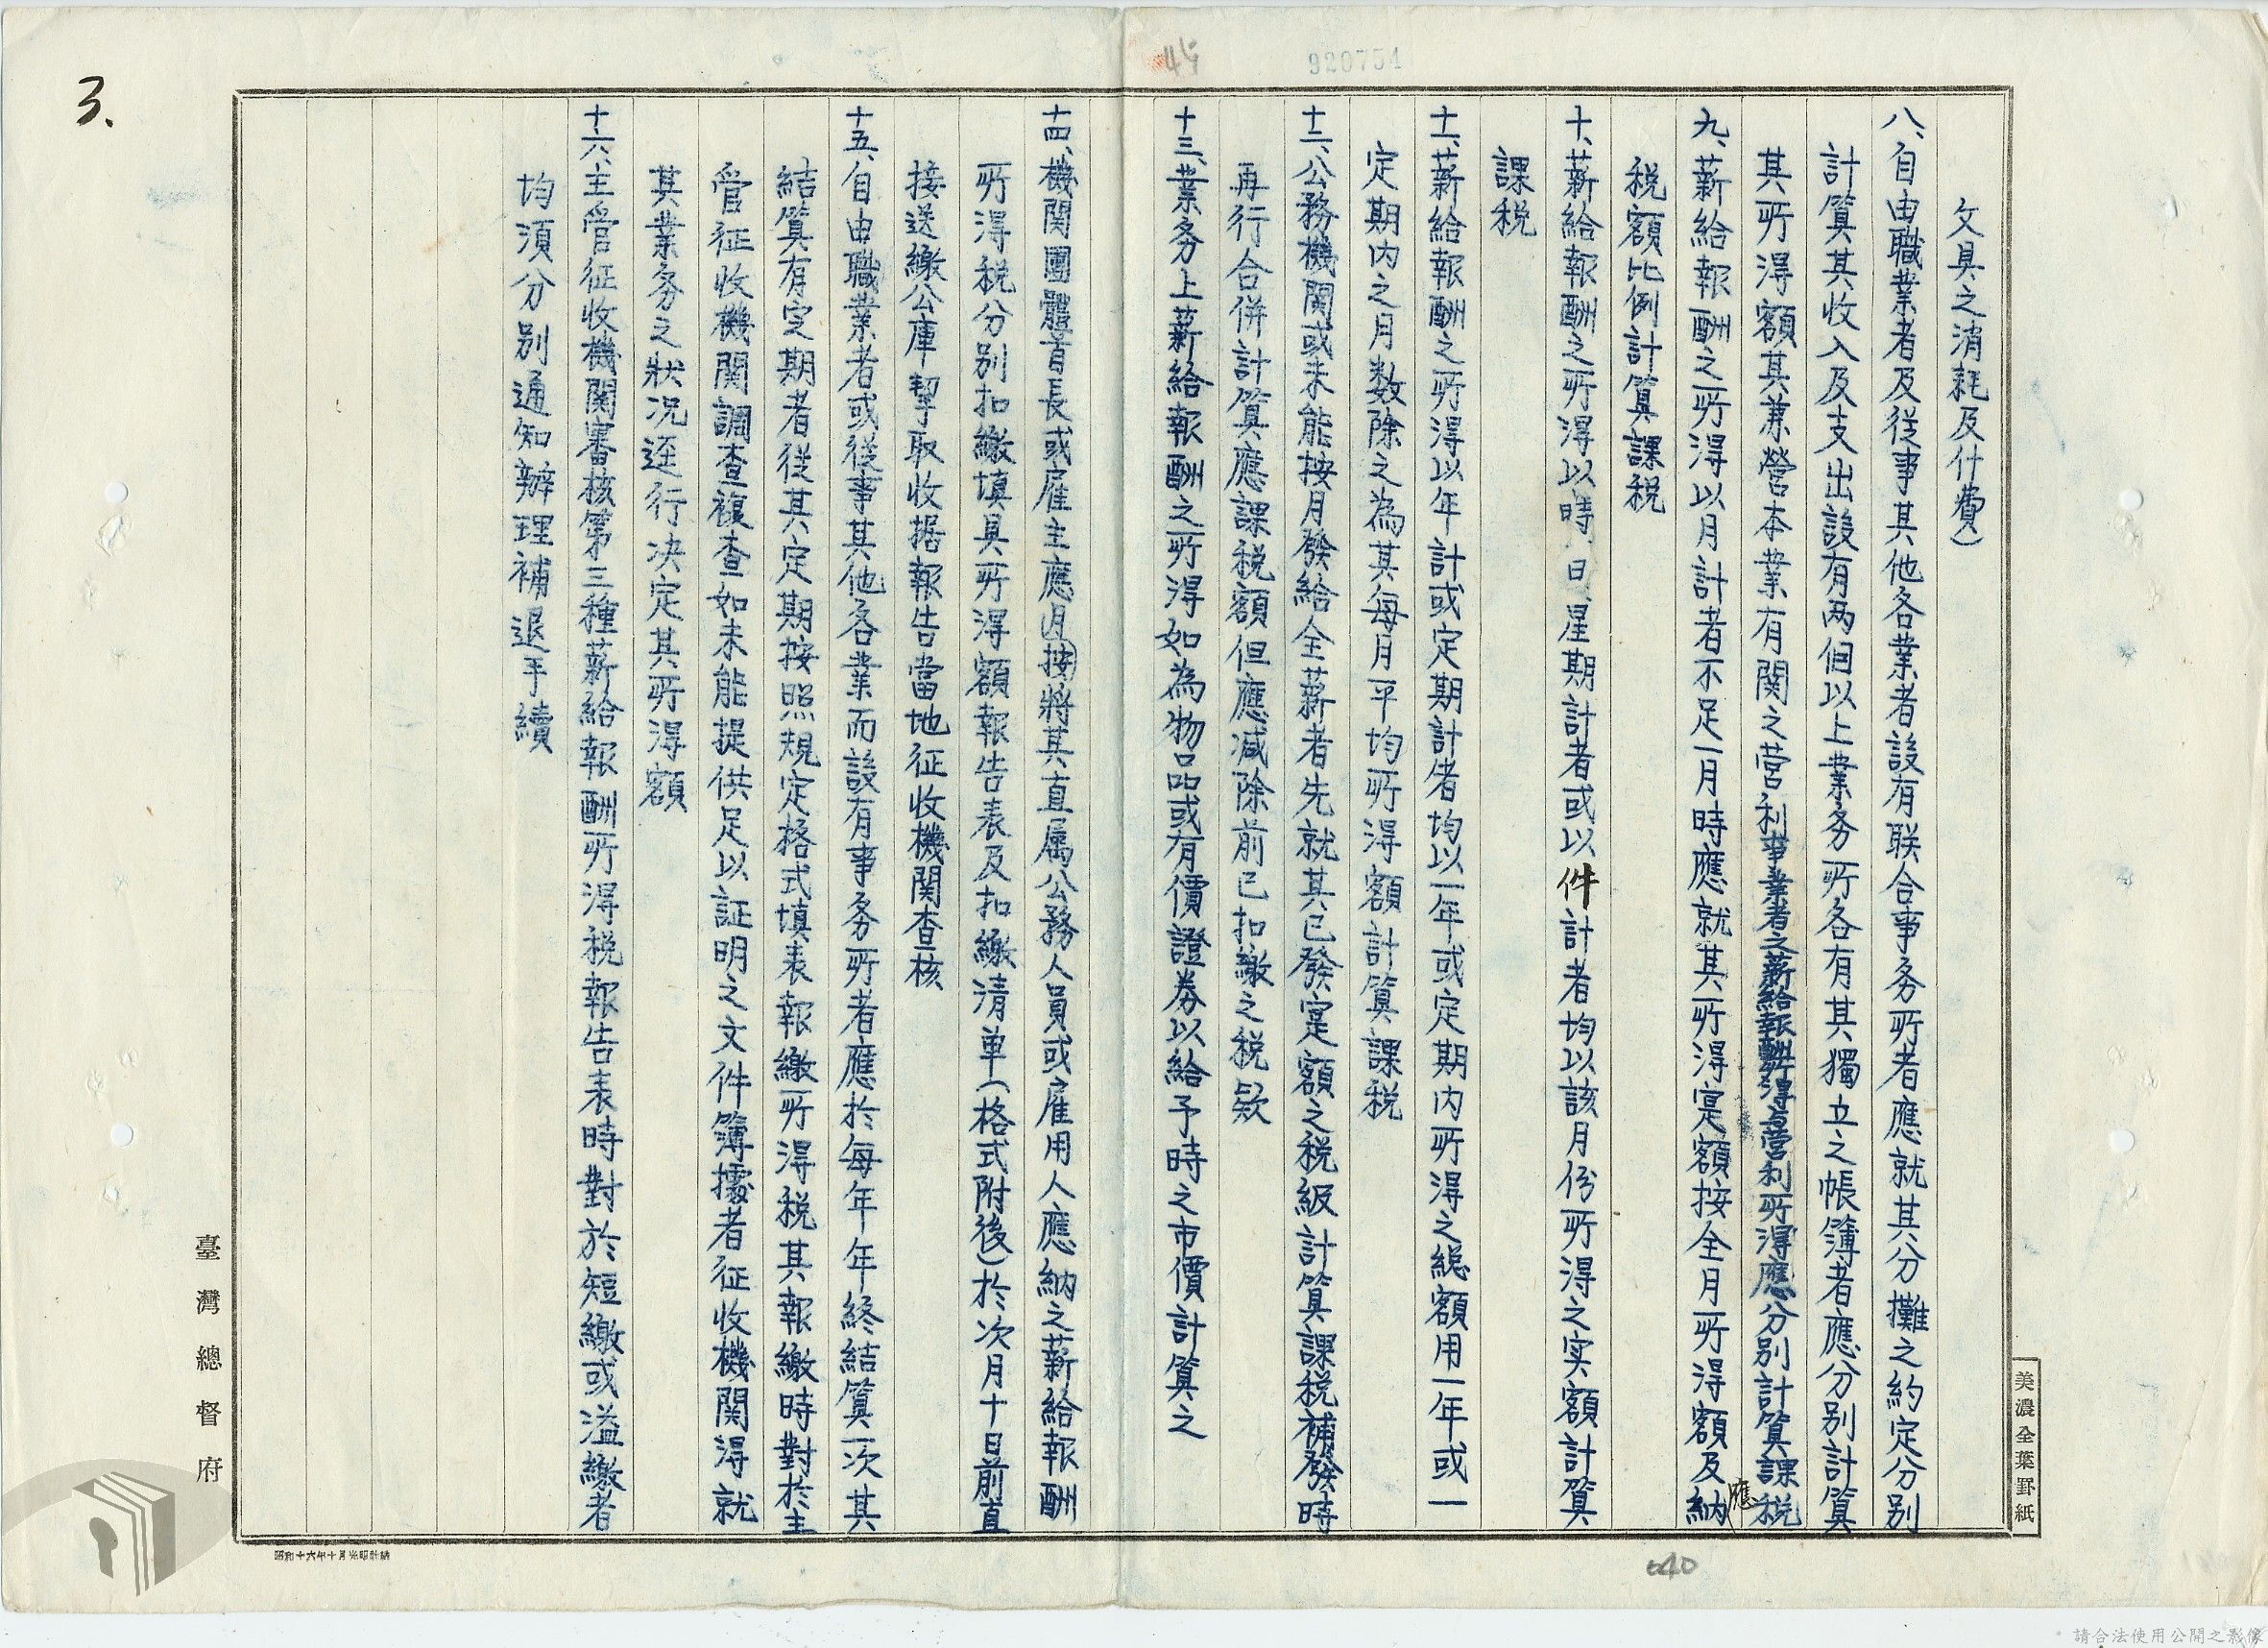 920754
3.
文具之消耗及什費）
八、自由職業者及從事其他各業者設有联合事务所者應就其分攤之約定分別
計算其收入及支出設有两個以上業务所各有其獨立之帳簿者應分別計算
其所得額其兼營本業有関之营利事業者之薪給報酬所得与营利所得應分別計算課税
九、薪給報酬之所得以月計者不足一月時應就其所得寔額按全月所得額及應納
税額比例計算課税
十、薪給報酬之所得以時、日、星期計者或以件計者均以該月份所得之实額計算
課税
十一、薪給報酬之所得以年計或定期計者均以一年或定期内所得之総額用一年或一
定期内之月数除之為其每月平均所得額計算課税
十二、公務機関或未能按月發給全薪者先就其已發寔額之税級計算課税補發時
再行合併計算應課税額但應减除前已扣繳之税款
十三、業务上薪給報酬之所得如為物品或有價證券以給予時之市價計算之
十四、機関團體首長或雇主應月按將其直属公務人員或雇用人應納之薪給報酬
所得税分別扣繳填具所得額報告表及扣繳清单（格式附後）於次月十日前直
接送繳公庫掣取收据報告當地征收機関查核
十五、自由職業者或從事其他各業而設有事务所者應於每年年終結算一次其
結算有定期者從其定期按照規定格式填表報繳所得税其報繳時對於主
管征收機関調查複查如未能提供足以証明之文件簿據者征收機関得就
其業务之狀况逕行决定其所得額
十六、主管征收機関審核第三種薪給報酬所得税報告表時對於短繳或溢繳者
均須分别通知辦理補退手續
臺灣總督府
美濃全葉罫紙
040
請合法使用公開之影像